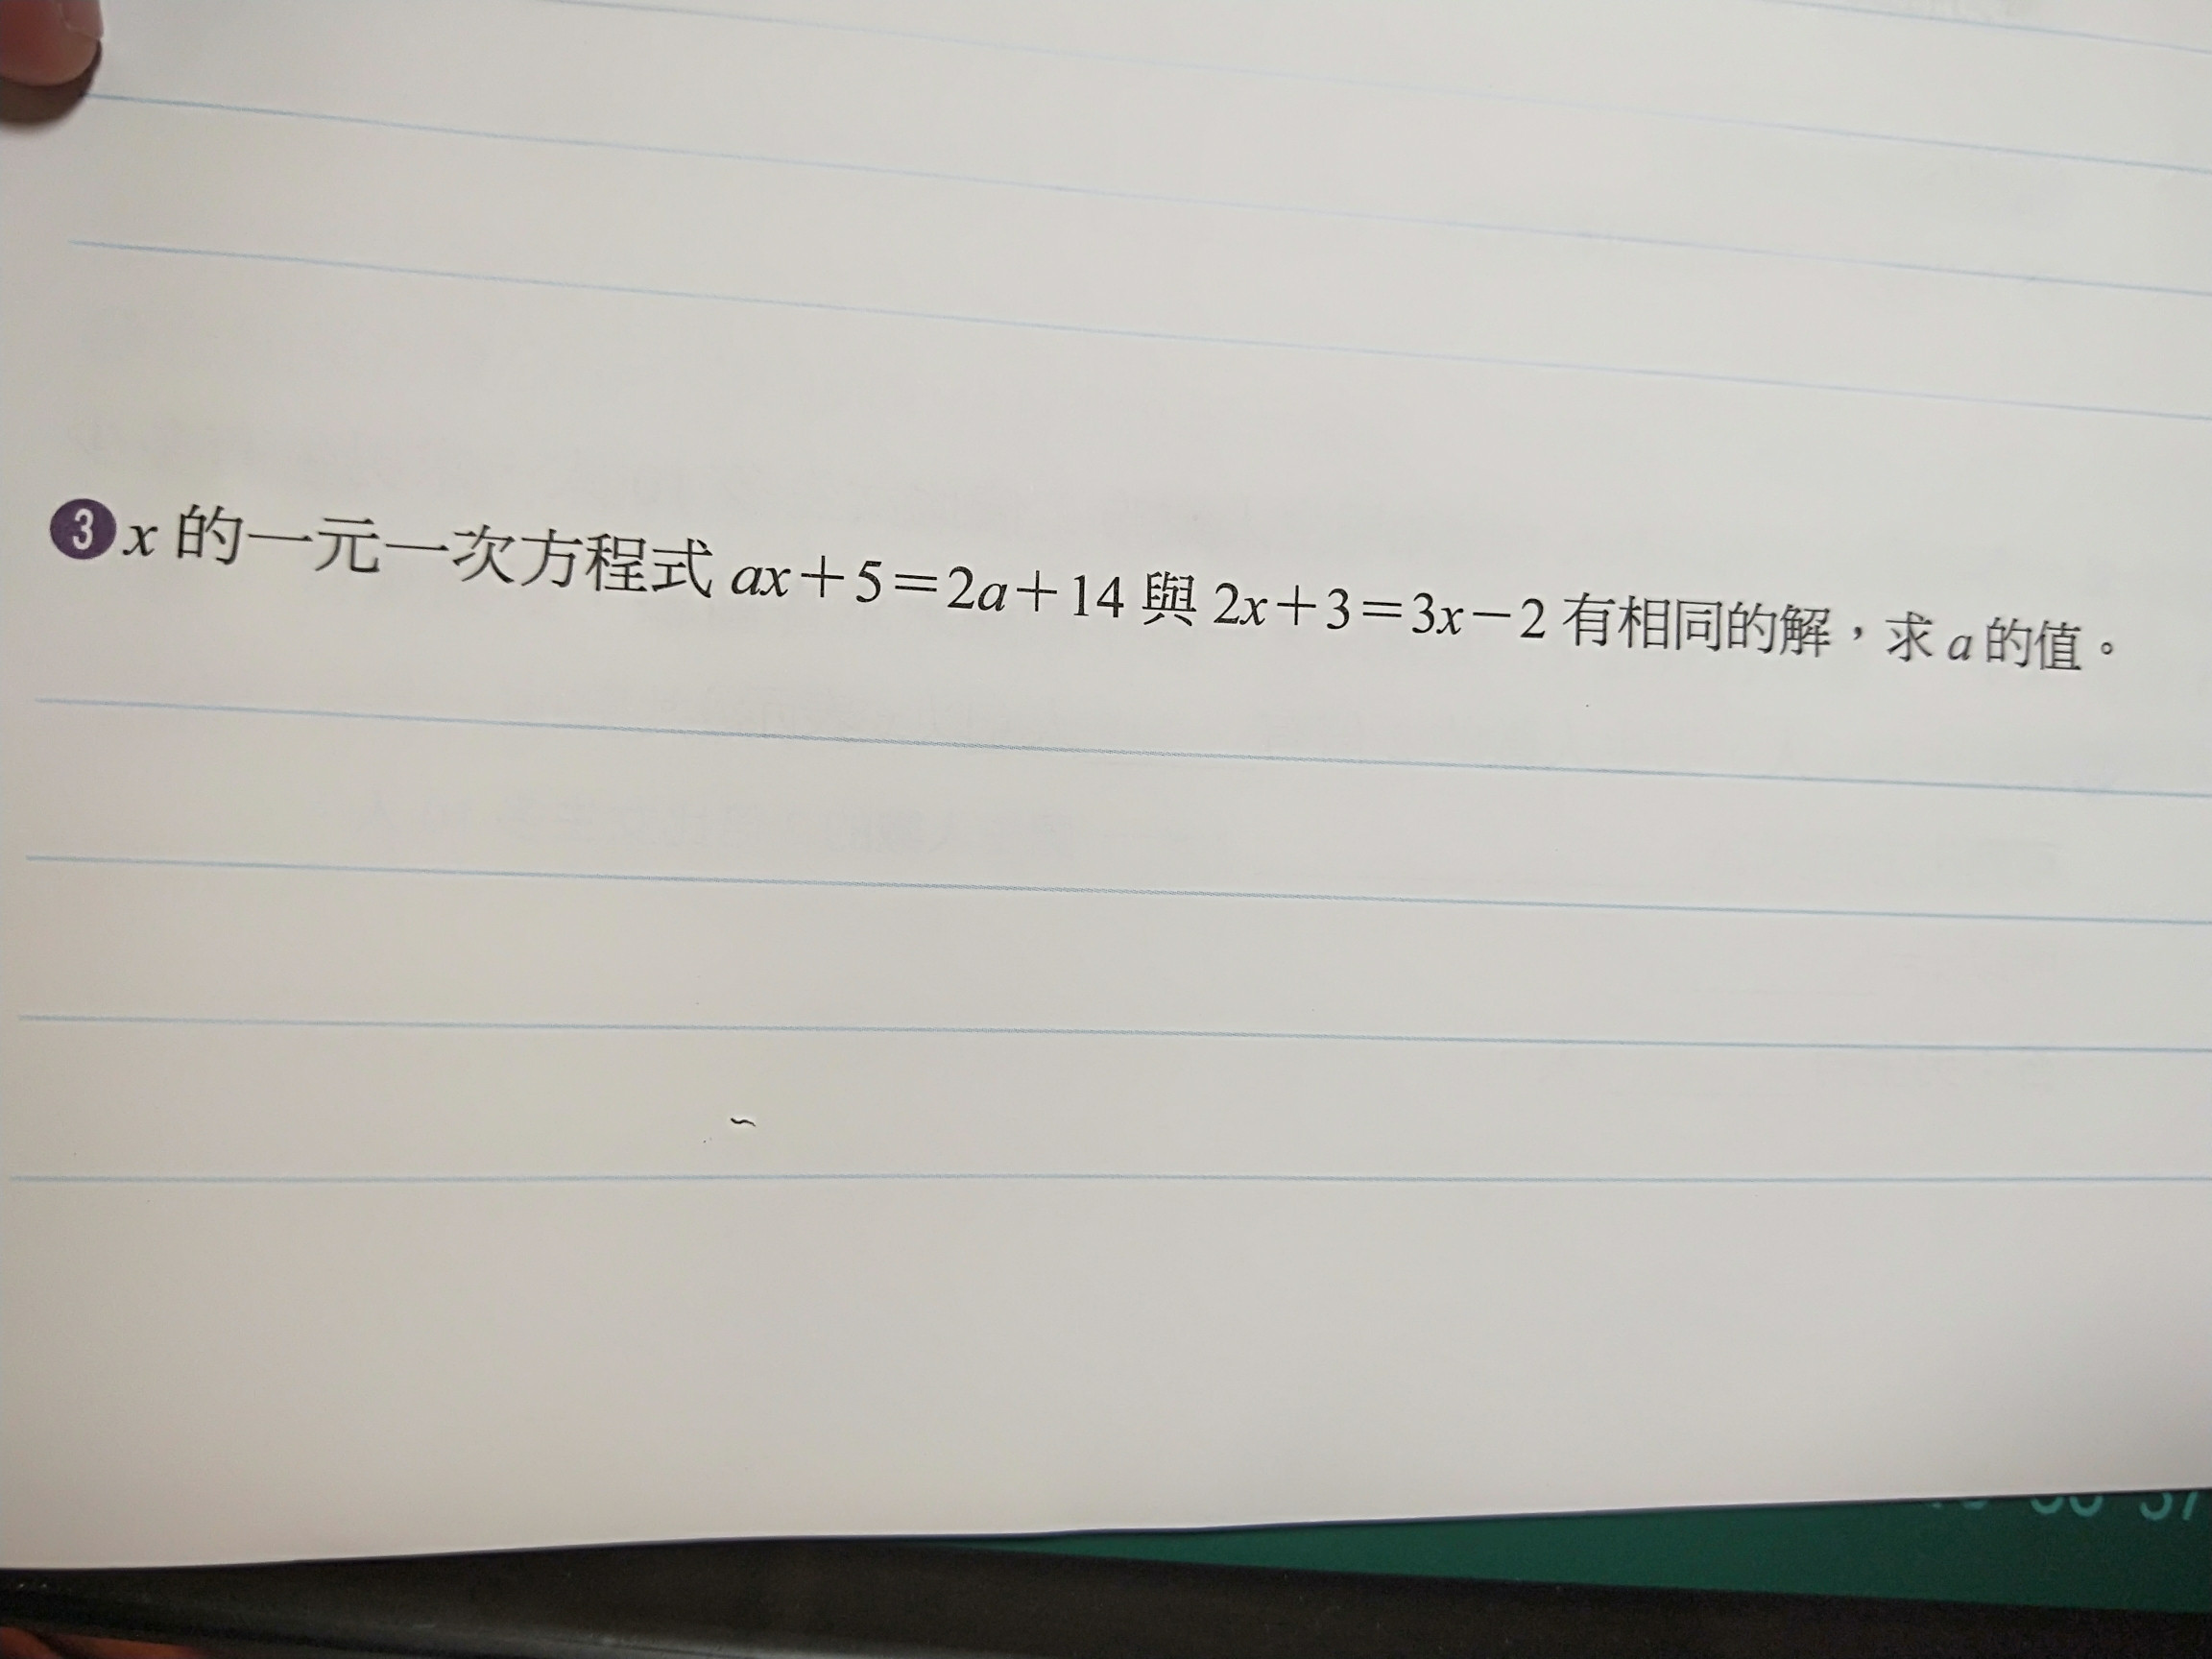 3 x 的一元一次方程式 ax+5=2a+14 與 2x+3=3x-2 有相同的解，求 a 的值。